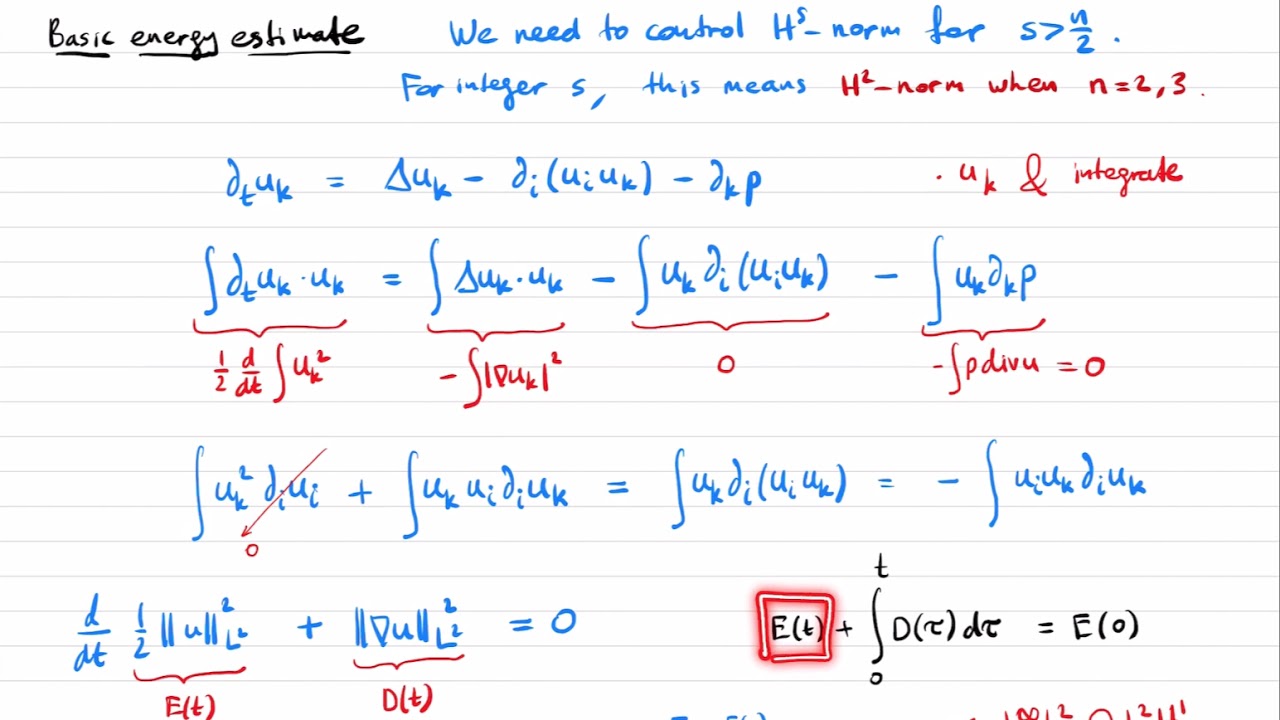 Basic energy estimate We need to control Hˢ-norm for s > n/2 .
For integer s, this means H²-norm when n=2,3.
∂ₜuₖ = Δuₖ − ∂ᵢ(uᵢuₖ) − ∂ₖp · uₖ & integrate
∫∂ₜuₖ·uₖ = ∫Δuₖ·uₖ − ∫uₖ∂ᵢ(uᵢuₖ) − ∫uₖ∂ₖp
½ d/dt ∫uₖ² −∫|∇uₖ|² 0 −∫p div u = 0
∫uₖ²∂ᵢuᵢ + ∫uₖuᵢ∂ᵢuₖ = ∫uₖ∂ᵢ(uᵢuₖ) = −∫uᵢuₖ∂ᵢuₖ
0
d/dt ½‖u‖²_L² + ‖∇u‖²_L² = 0 E(t) + ∫₀ᵗ D(τ)dτ = E(0)
E(t) D(t)